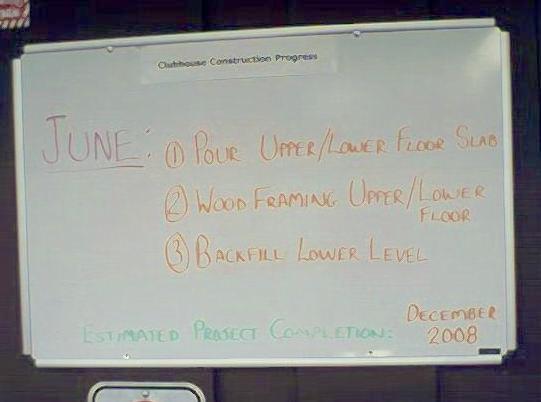 Clubhouse Construction Progress
JUNE: ① POUR UPPER/LOWER FLOOR SLAB
② WOOD FRAMING UPPER/LOWER
FLOOR
③ BACKFILL LOWER LEVEL
ESTIMATED PROJECT COMPLETION: DECEMBER
2008